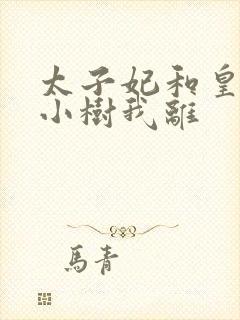 太子妃和皇
小樹我離
馬青